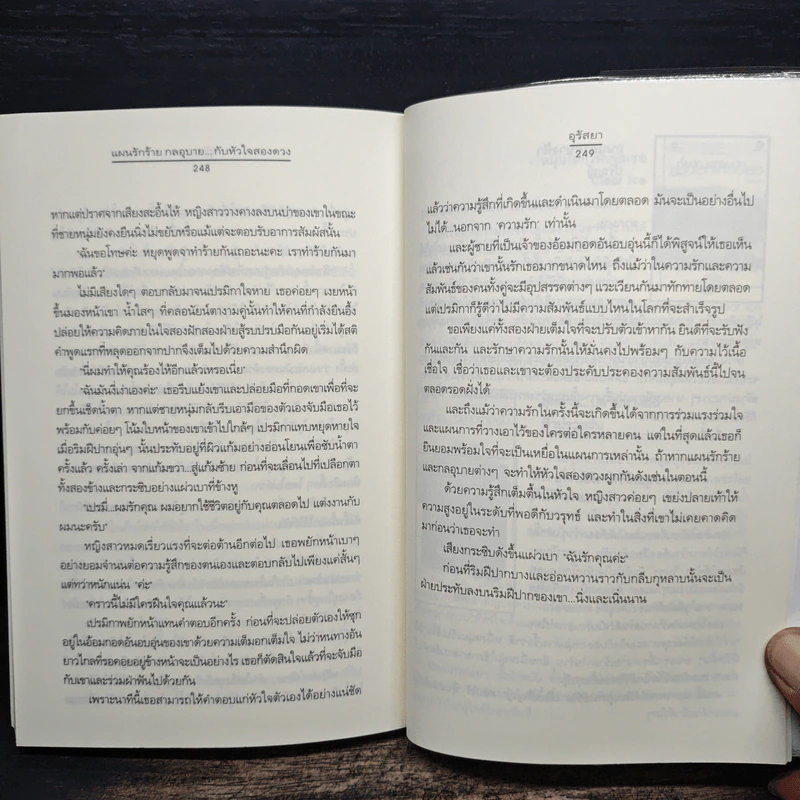 แผนรักร้าย กลอุบาย...กับหัวใจสองดวง
248
หากแต่ปราศจากเสียงสะอื้นไห้ หญิงสาววางคางลงบนบ่าของเขาในขณะ
ที่ชายหนุ่มยังคงยืนนิ่งไม่ขยับหรือแม้แต่จะตอบรับอาการสัมผัสนั้น
"ฉันขอโทษค่ะ หยุดพูดจาทำร้ายกันเถอะนะคะ เราทำร้ายกันมา
มากพอแล้ว"
ไม่มีเสียงใดๆ ตอบกลับมาจนเปรมิกาใจหาย เธอค่อยๆ เงยหน้า
ขึ้นมองหน้าเขา น้ำใสๆ ที่คลอนัยน์ตางามคู่นั้นทำให้คนที่กำลังยืนอึ้ง
ปล่อยให้ความคิดภายในใจสองฝักสองฝ่ายสู้รบปรบมือกันอยู่เริ่มได้สติ
คำพูดแรกที่หลุดออกจากปากจึงเต็มไปด้วยความสำนึกผิด
"นี่ผมทำให้คุณร้องไห้อีกแล้วเหรอเนี่ย"
"ฉันมันงี่เง่าเองค่ะ" เธอรีบแย้งเขาและปล่อยมือที่กอดเขาเพื่อที่จะ
ยกขึ้นเช็ดน้ำตา หากแต่ชายหนุ่มกลับรีบเอามือของตัวเองจับมือเธอไว้
พร้อมกับค่อยๆ โน้มใบหน้าของเขาเข้าไปใกล้ๆ เปรมิกาแทบหยุดหายใจ
เมื่อริมฝีปากอุ่นๆ นั้นประทับอยู่ที่ผิวแก้มอย่างอ่อนโยนเพื่อซับน้ำตา
ครั้งแล้ว ครั้งเล่า จากแก้มขวา...สู่แก้มซ้าย ก่อนที่จะเลื่อนไปที่เปลือกตา
ทั้งสองข้างและกระซิบอย่างแผ่วเบาที่ข้างหู
"เปรมี่...ผมรักคุณ ผมอยากใช้ชีวิตอยู่กับคุณตลอดไป แต่งงานกับ
ผมนะครับ"
หญิงสาวหมดเรี่ยวแรงที่จะต่อต้านอีกต่อไป เธอพยักหน้าเบาๆ
อย่างยอมจำนนต่อความรู้สึกของตนเองและตอบกลับไปเพียงแค่สั้นๆ
แต่ทว่าหนักแน่น "ค่ะ"
"คราวนี้ไม่มีใครฝืนใจคุณแล้วนะ"
เปรมิกาพยักหน้าแทนคำตอบอีกครั้ง ก่อนที่จะปล่อยตัวเองให้ซุก
อยู่ในอ้อมกอดอันอบอุ่นของเขาด้วยความเต็มอกเต็มใจ ไม่ว่าหนทางอัน
ยาวไกลที่รอคอยอยู่ข้างหน้าจะเป็นอย่างไร เธอก็ตัดสินใจแล้วที่จะจับมือ
กับเขาและร่วมฝ่าฟันไปด้วยกัน
เพราะนาทีนี้เธอสามารถให้คำตอบแก่หัวใจตัวเองได้อย่างแน่ชัด
อุรัสยา
249
แล้วว่าความรู้สึกที่เกิดขึ้นและดำเนินมาโดยตลอด มันจะเป็นอย่างอื่นไป
ไม่ได้...นอกจาก 'ความรัก' เท่านั้น
และผู้ชายที่เป็นเจ้าของอ้อมกอดอันอบอุ่นนี้ก็ได้พิสูจน์ให้เธอเห็น
แล้วเช่นกันว่าเขานั้นรักเธอมากขนาดไหน ถึงแม้ว่าในความรักและความ
สัมพันธ์ของคนทั้งคู่จะมีอุปสรรคต่างๆ แวะเวียนกันมาทักทายโดยตลอด
แต่เปรมิกาก็รู้ดีว่าไม่มีความสัมพันธ์แบบไหนในโลกที่จะสำเร็จรูป
ขอเพียงแค่ทั้งสองฝ่ายเต็มใจที่จะปรับตัวเข้าหากัน ยินดีที่จะรับฟัง
กันและกัน และรักษาความรักนั้นให้มั่นคงไปพร้อมๆ กับความไว้เนื้อ
เชื่อใจ เชื่อว่าเธอและเขาจะต้องประคับประคองความสัมพันธ์นี้ไปจน
ตลอดรอดฝั่งได้
และถึงแม้ว่าความรักในครั้งนี้จะเกิดขึ้นได้จากการร่วมแรงร่วมใจ
และแผนการที่วางเอาไว้ของใครต่อใครหลายคน แต่ในที่สุดแล้วเธอก็
ยินยอมพร้อมใจที่จะเป็นเหยื่อในแผนการเหล่านั้น ถ้าหากแผนรักร้าย
และกลอุบายต่างๆ จะทำให้หัวใจสองดวงผูกกันดังเช่นในตอนนี้
ด้วยความรู้สึกเต็มตื้นในหัวใจ หญิงสาวค่อยๆ เขย่งปลายเท้าให้
ความสูงอยู่ในระดับที่พอดีกับวรุทธ์ และทำในสิ่งที่เขาไม่เคยคาดคิด
มาก่อนว่าเธอจะทำ
เสียงกระซิบดังขึ้นแผ่วเบา "ฉันรักคุณค่ะ"
ก่อนที่ริมฝีปากบางและอ่อนหวานราวกับกลีบกุหลาบนั้นจะเป็น
ฝ่ายประทับลงบนริมฝีปากของเขา...นิ่งและเนิ่นนาน